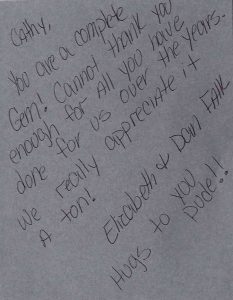 Cathy,
You are a complete
Gem! Cannot thank you
enough for All you have
done for us over the years.
We really appreciate it
A ton!
Elizabeth & Dan
Hugs to you
Dude!!